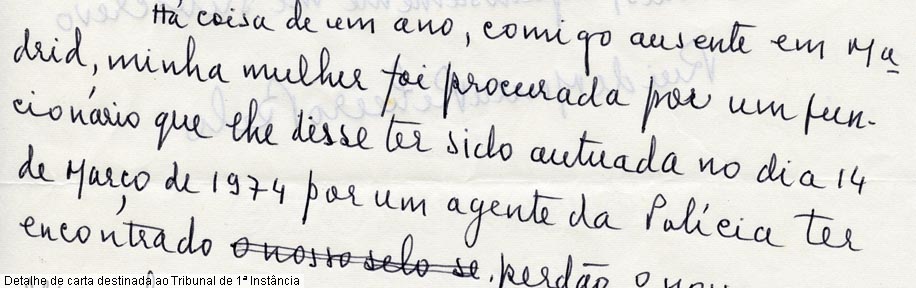 Há coisa de um ano, comigo ausente em Ma
drid, minha mulher foi procurada por um fun-
cionário que lhe disse ter sido autuada no dia 14
de Março de 1974 por um agente da Polícia ter
encontrado o nosso selo se. perdão o
Detalhe de carta destinada ao Tribunal de 1ª Instância